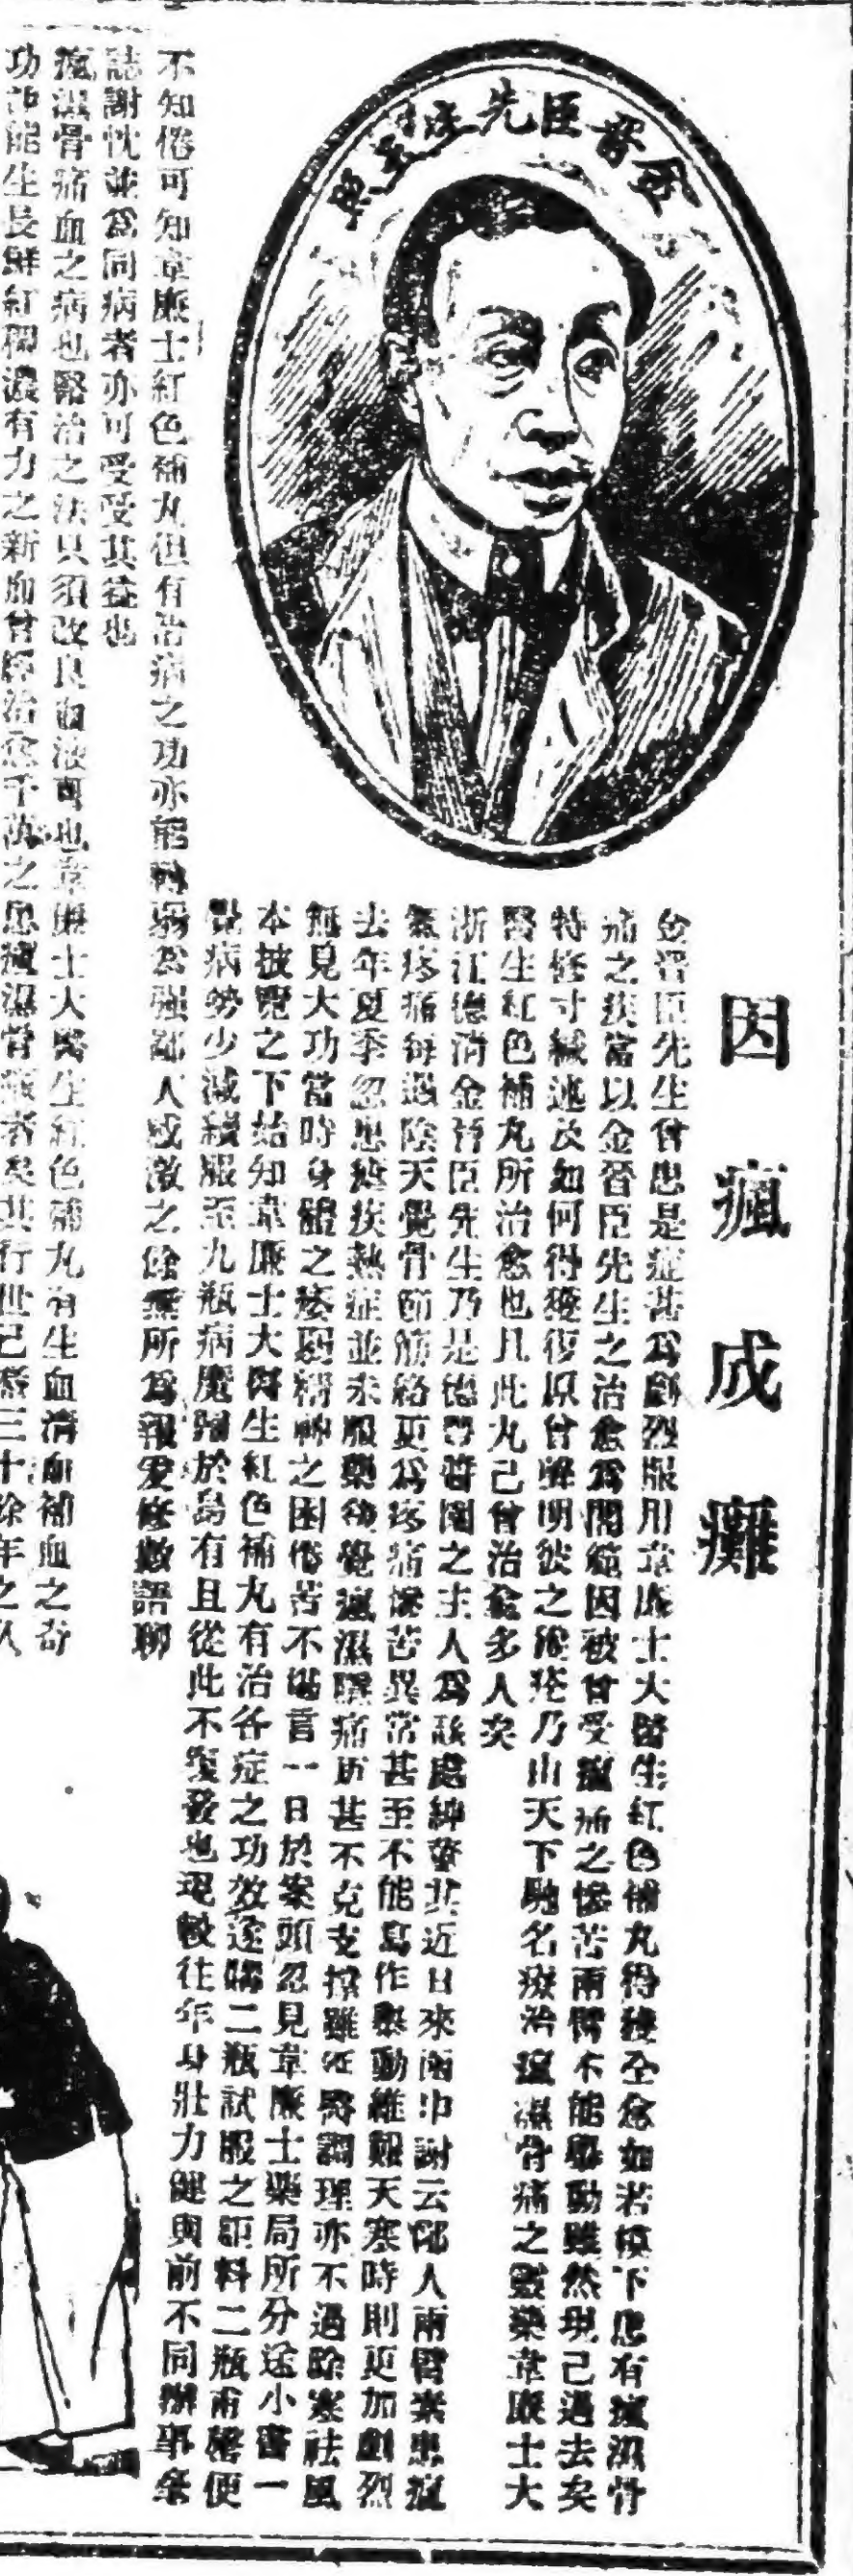 金晋臣先生玉照
因瘋成癱
金晋臣先生曾患是症甚爲劇烈服用韋廉士大醫生紅色補丸得獲全愈如若模下患有瘋濕骨
痛之疾當以金晋臣先生之治愈爲開範因彼曾受瘋痛之慘苦兩臂不能舉動雖然現已過去矣
特修寸緘述及如何得獲復原曾聲明彼之獲痊乃由天下馳名療治瘋濕骨痛之靈藥韋廉士大
醫生紅色補丸所治愈也且此丸已曾治愈多人矣
浙江德清金晋臣先生乃是德豐醬園之主人爲該處紳董其近日來函申謝云鄙人兩臂素患瘋
氣疼痛每遇陰天覺骨節筋絡更爲疼痛慘苦異常甚至不能寫作舉動維艱天寒時則更加劇烈
去年夏季忽患瘧疾熱症並未服藥後覺瘋濕臂痛更甚不克支撑雖經醫調理亦不過除寒祛風
無見大功當時身體之痿弱精神之困憊苦不堪言一日於案頭忽見韋廉士藥局所分送小書一
本披覽之下始知韋廉士大醫生紅色補丸有治各症之功效遂購二瓶試服之詎料二瓶甫罄便
覺病勢少減續服至九瓶病魔歸於烏有且從此不復發也現較往年身壯力健與前不同辦事絫
不知倦可知韋廉士紅色補丸但有治病之功亦能轉弱爲强鄙人感激之餘無所爲報爰修數語聊
誌謝忱並爲同病者亦可受受其益也
瘋濕骨痛血之病也醫治之法只須改良血液可也韋廉士大醫生紅色補丸有生血清血補血之奇
功能生長鮮紅稠濃有力之新血曾經治愈千萬之患瘋濕骨痛者矣其行世已有三十餘年之久